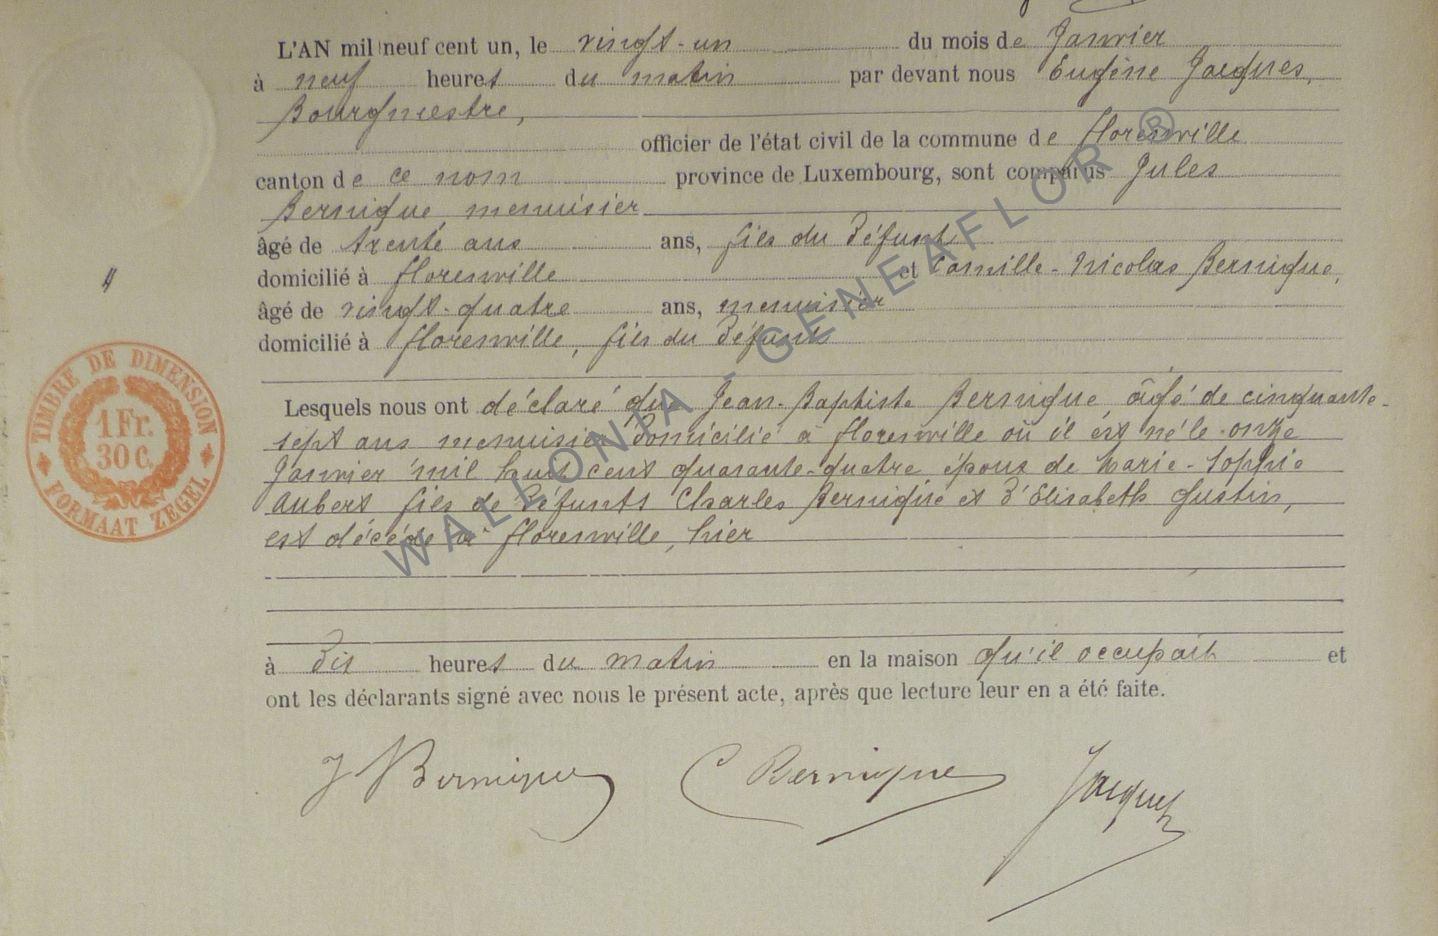 L'AN mil neuf cent un, le vingt-un du mois de Janvier
à neuf heures du matin par devant nous Eugène Jacques,
Bourgmestre,
officier de l'état civil de la commune de Florenville
canton de ce nom province de Luxembourg, sont comparus Jules
Bernique, menuisier
âgé de trente ans ans, fils du défunt
domicilié à Florenville et Camille-Nicolas Bernique,
âgé de vingt-quatre ans, menuisier
domicilié à Florenville, fils du défunt
Lesquels nous ont déclaré que Jean-Baptiste Bernique, âgé de cinquante-
sept ans menuisier domicilié à Florenville où il est né le onze
Janvier mil huit cent quarante-quatre époux de Marie-Sophie
Aubert fils de défunts Charles Bernique et d'Elisabeth Gustin,
est décédé à Florenville, hier
à dix heures du matin en la maison qu'il occupait et
ont les déclarants signé avec nous le présent acte, après que lecture leur en a été faite.
J Bernique C Bernique Jacques
TIMBRE DE DIMENSION
1 Fr.
30 C.
FORMAAT ZEGEL
WALLONIA - GENEAFLOR ®